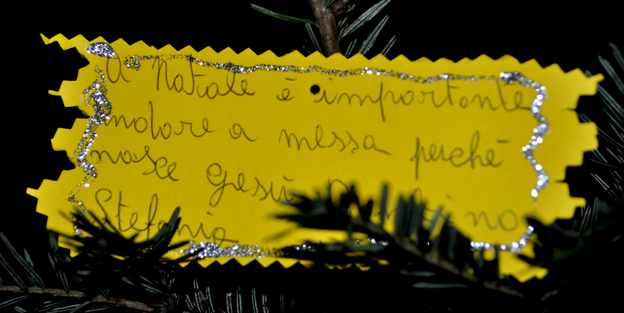 A Natale è importante
andare a messa perché
nasce Gesù Bambino
Stefania